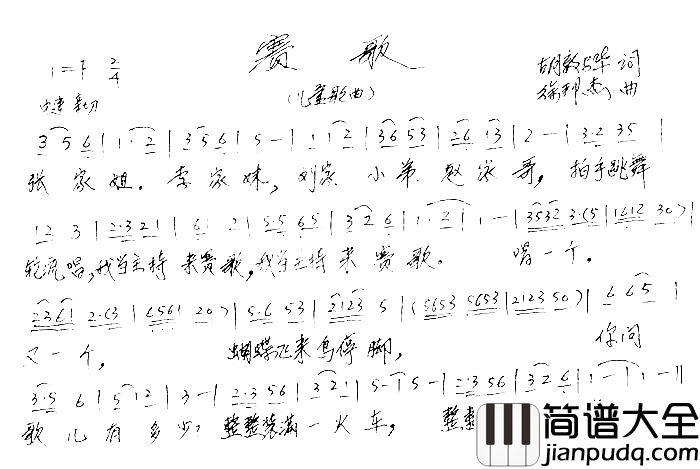 赛 歌
1=F 2/4
(儿童歌曲)
胡敦骅 词
徐邦杰 曲
3 5 6 | 1· 2 | 3 5 6 | 5 - | 1 1 2 | 36 53 | 26 13 | 2 - | 3·2 35 |
张 家 姐, 李 家 妹, 刘家 小 弟 赵 家 哥, 拍手跳舞
12 3 | 2·3 21 | 6 2 | 5·5 65 | 3 2 6 | 1·2 | 1 - | 3532 3·(5 | 1612 30) |
轮流唱,我当主持 来赛歌,我当主持 来 赛 歌. 唱一个,
2361 2·(3 | 6561 20) | 5·6 53 | 2123 5 | (5653 5653 | 2123 50) | 6 65 |
又一个, 蝴蝶飞来鸟停脚, 你问
3·5 6 | 5 12 | 3 - | 2·3 56 | 3 21 | 5 - | 5 - | 2·3 56 | 3 2 6 | 1 - | 1 - ‖
歌 儿 有 多 少? 整整装满 一 火 车, 整整
简谱大全
jianpudq.com